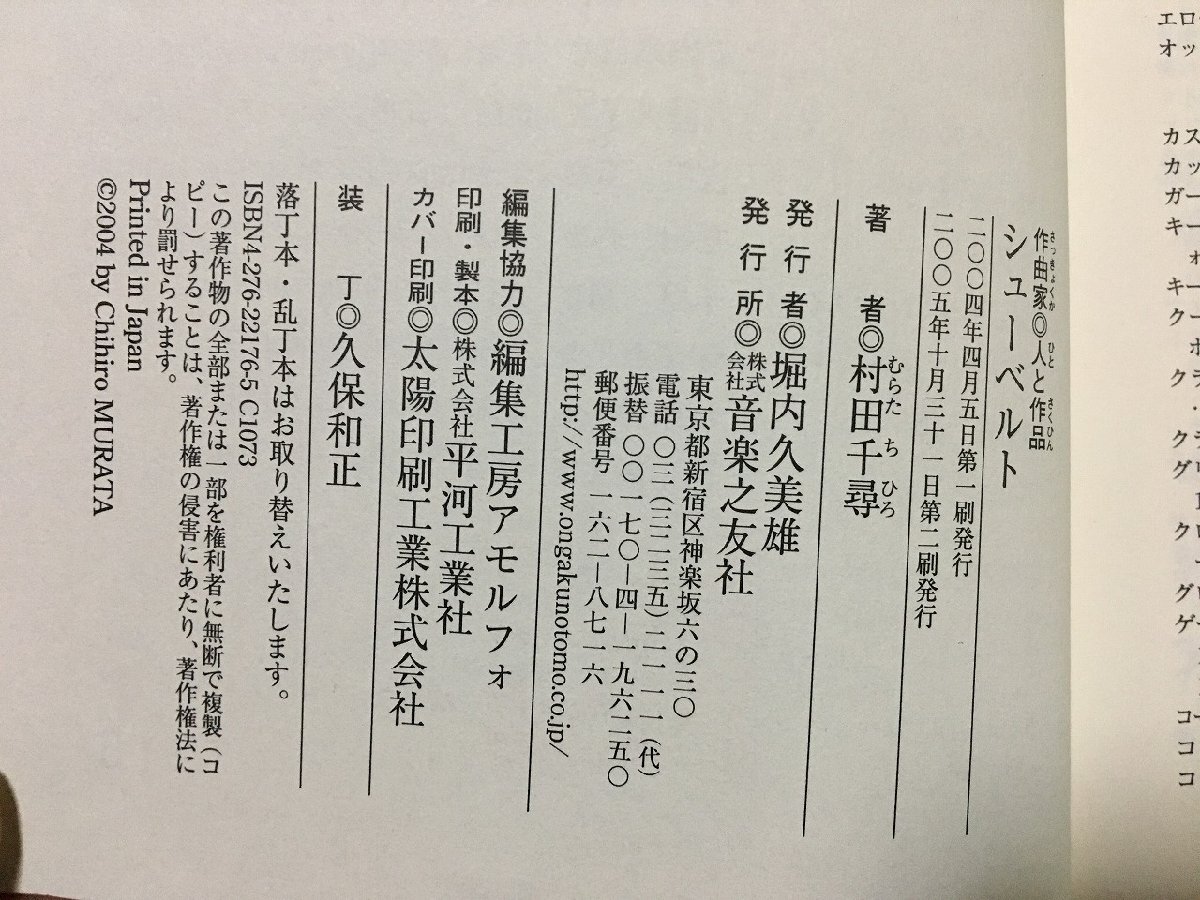 作曲家◎人と作品
シューベルト
二〇〇四年四月五日第一刷発行
二〇〇五年十月三十一日第二刷発行
著　者◎村田千尋
発行者◎堀内久美雄
発行所◎株式会社音楽之友社
東京都新宿区神楽坂六の三〇
電話 〇三（三二三五）二一一一（代）
振替 〇〇一七〇―四―一九六二五〇
郵便番号 一六二―八七一六
http://www.ongakunotomo.co.jp/
編集協力◎編集工房アモルフォ
印刷・製本◎株式会社平河工業社
カバー印刷◎太陽印刷工業株式会社
装　丁◎久保和正
落丁本・乱丁本はお取り替えいたします。
ISBN4-276-22176-5 C1073
この著作物の全部または一部を権利者に無断で複製（コ
ピー）することは、著作権の侵害にあたり、著作権法に
より罰せられます。
Printed in Japan
©2004 by Chihiro MURATA